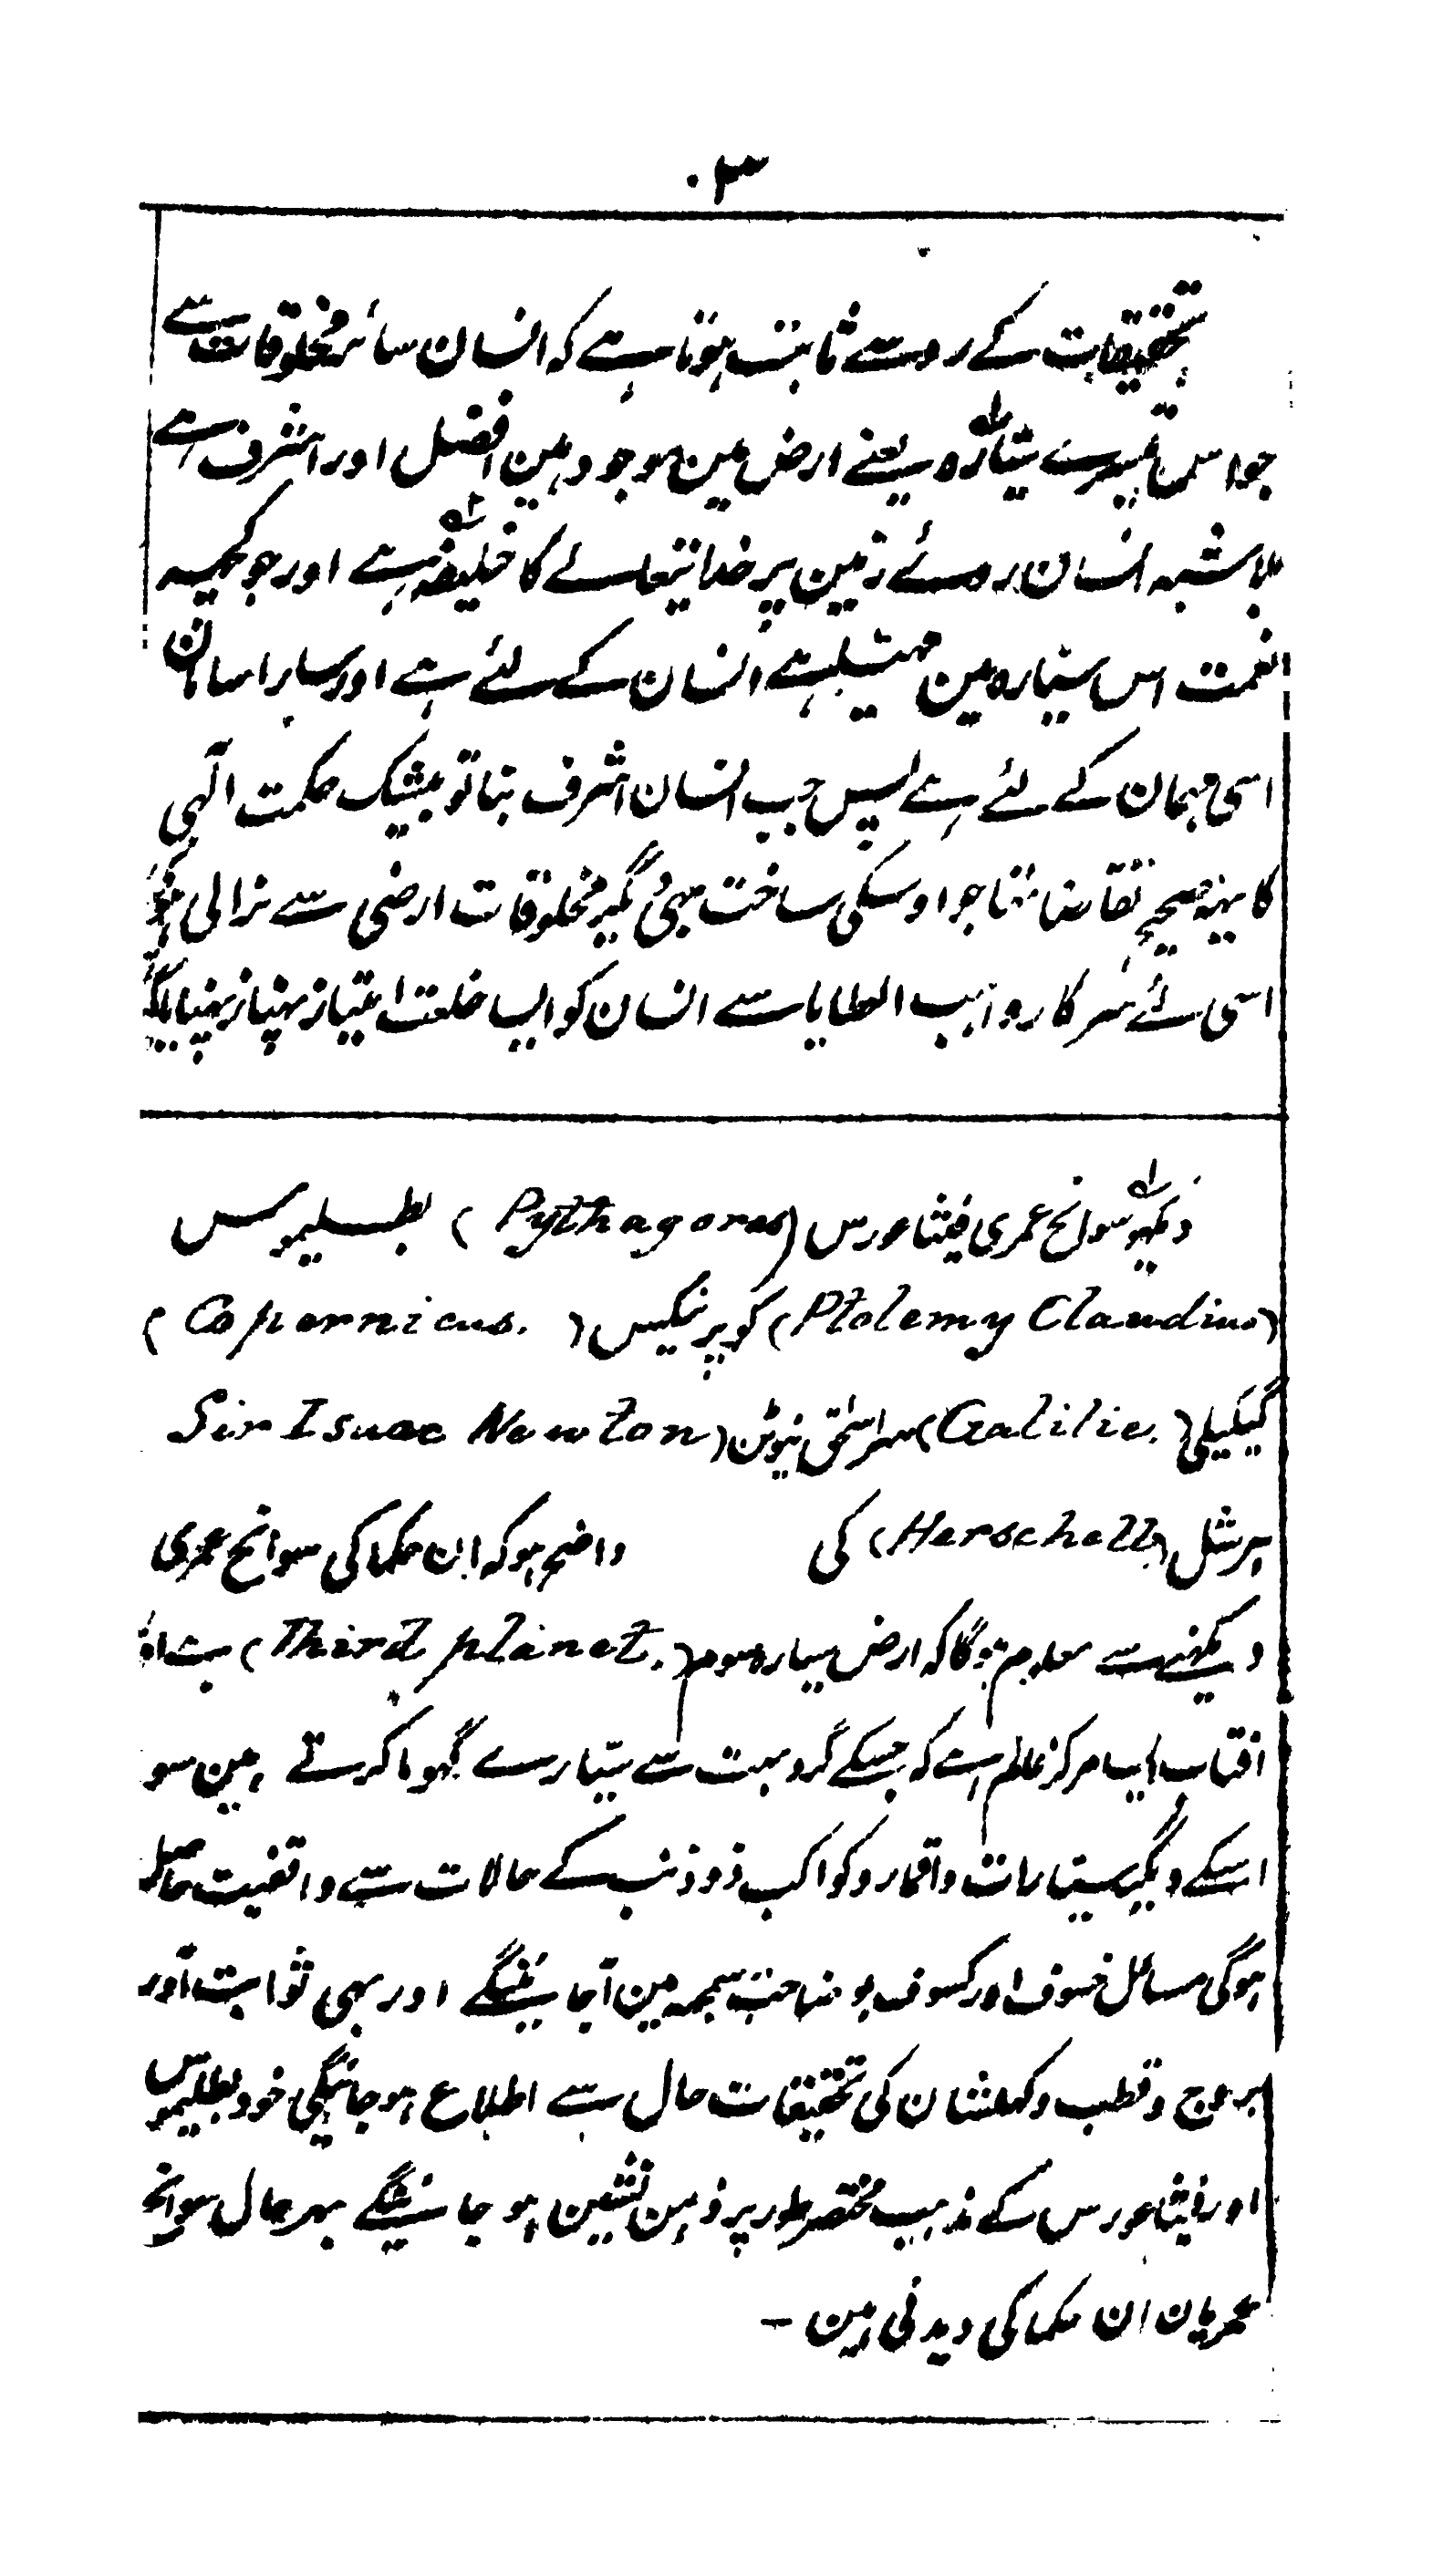 ۳
تحقیقات کے روسے ثابت ہوتا ہے کہ انسان سائر مخلوقات سے
جو اس تیسرے ستارہ یعنے ارض مین موجود ہین افضل اور اشرف ہے
بلا شبہ انسان روئے زمین پر خدا تعالے کا خلیفہ ہے اور جو کچہہ
نعمت اس ستیارہ مین مہیا ہے انسان کے لئے ہے اور سارا سامان
اسی مہمان کے لئے ہے پس جب انسان اشرف بنا تو بیشک حکمت الٰہی
کا یہہ صحیح تقاضا تہا جو اوسکی ساخت بہی دیگر مخلوقات ارضی سے نرالی ہو
اسی لئے سرکار واہب العطایا سے انسان کو ایسا خلعت امتیاز پہنایا گیا
لہ دیکہو سوانح عمری فیثاغورس (Pythagoras) بطلیموس
(Ptolemy Claudius) کوپرنیکس (Copernicus.)
گیلیلی (Galilie.) سر اسحق نیوٹن (Sir Isuac Newton
ہرشل (Herschell) کی واضح ہو کہ ان حکما کی سوانح عمری
دیکہنے سے معلوم ہوگا کہ ارض سیارہ سوم (Third planet.) ہے اور
افتاب ایسا مرکز عالم ہے کہ جسکے گرد بہت سے ستیارے گہوما کرتے ہین سو
اسکے دیگر ستیارات و اقمار و کواکب ذوذنب کے حالات سے واقفیت حاصل
ہوگی مسائل خسوف اور کسوف بوضاحت سمجہہ مین آجائینگے اور بہی ثوابت اور
بروج و قطب و کہکشان کی تحقیقات حال سے اطلاع ہو جائیگی خود بطلیموس
اور فیثاغورس کے مذہب مختصر طور پر ذہن نشین ہو جائینگے بہر حال سوانح
عمریان ان حکما کی دیدنی ہین -